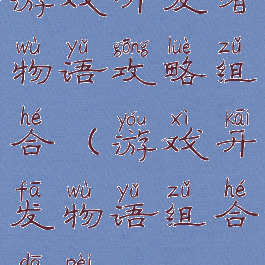 游戏开发者
wù yǔ gōng lüè zǔ
物语攻略组
hé yóu xì kāi
合（游戏开
fā wù yǔ zǔ hé
发物语组合
dā pèi